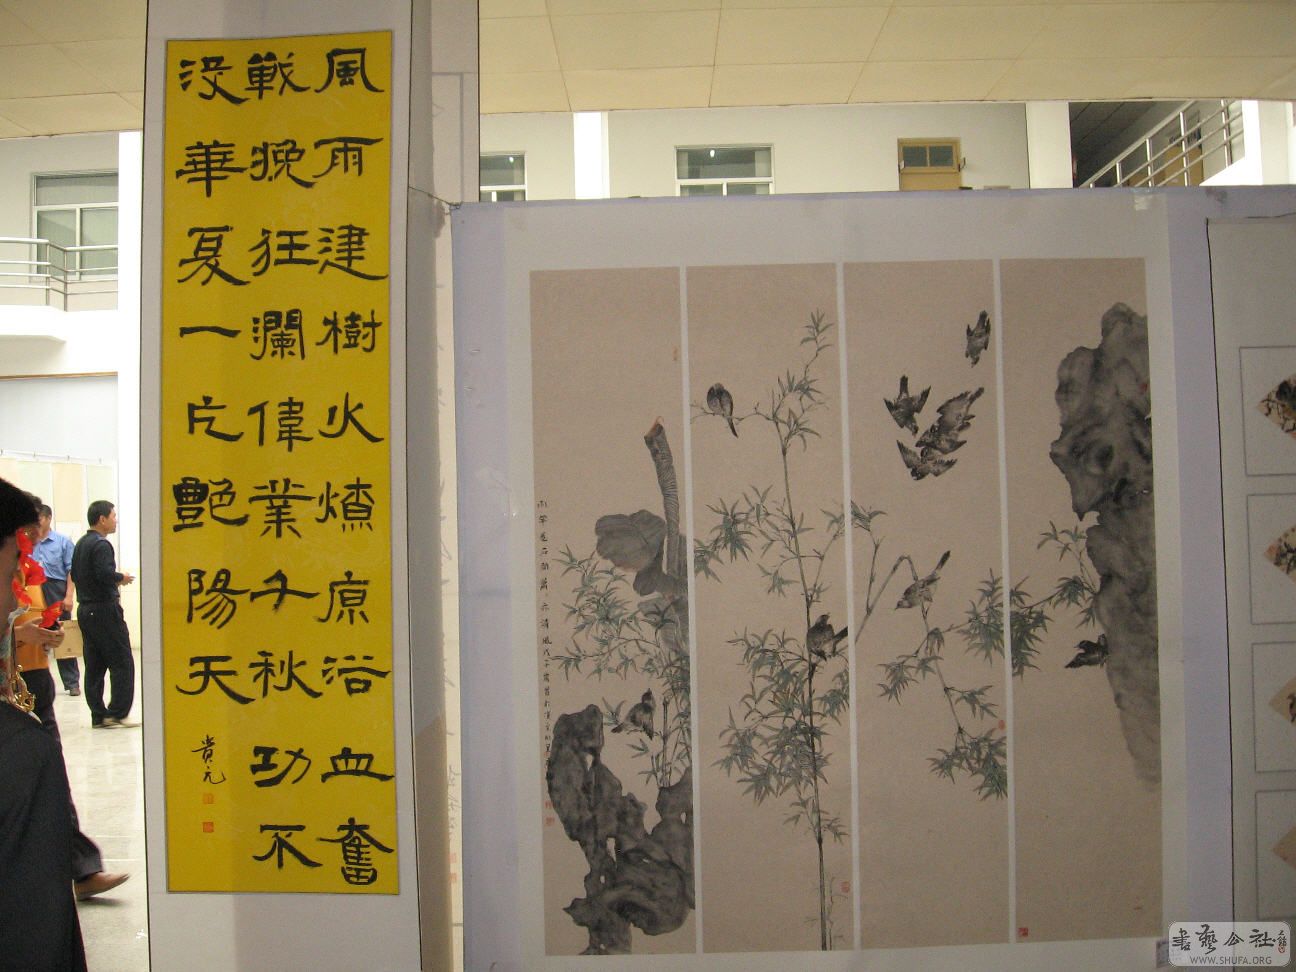 風雨建樹火燎原浴血奮
戰挽狂瀾偉業千秋功不
没華夏一片艷陽天
貴元
書藝公社
WWW.SHUFA.ORG